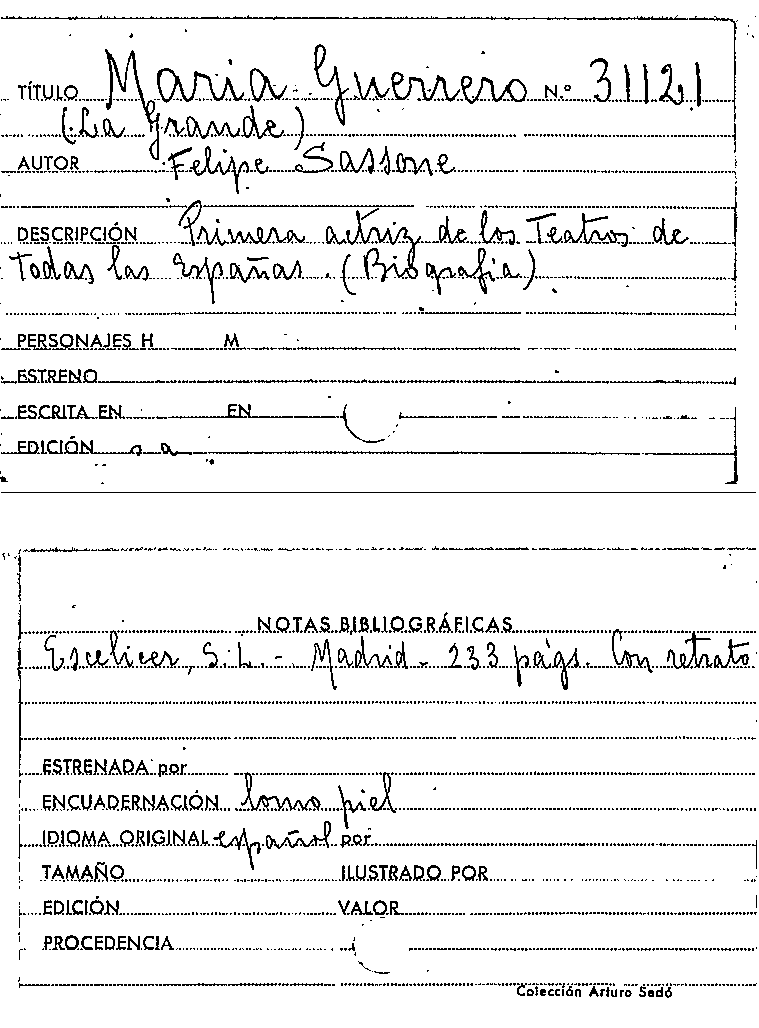 TÍTULO Maria Guerrero N.º 31121
(La Grande)
AUTOR Felipe Sassone
DESCRIPCIÓN Primera actriz de los Teatros de
Todas las Españas. (Biografia)
PERSONAJES H M
ESTRENO
ESCRITA EN EN
EDICIÓN s a
NOTAS BIBLIOGRÁFICAS
Escelicer, S. L. - Madrid - 233 págs. Con retrato
ESTRENADA por
ENCUADERNACIÓN lomo piel
IDIOMA ORIGINAL español por
TAMAÑO ILUSTRADO POR
EDICIÓN VALOR
PROCEDENCIA
Colección Arturo Sedó